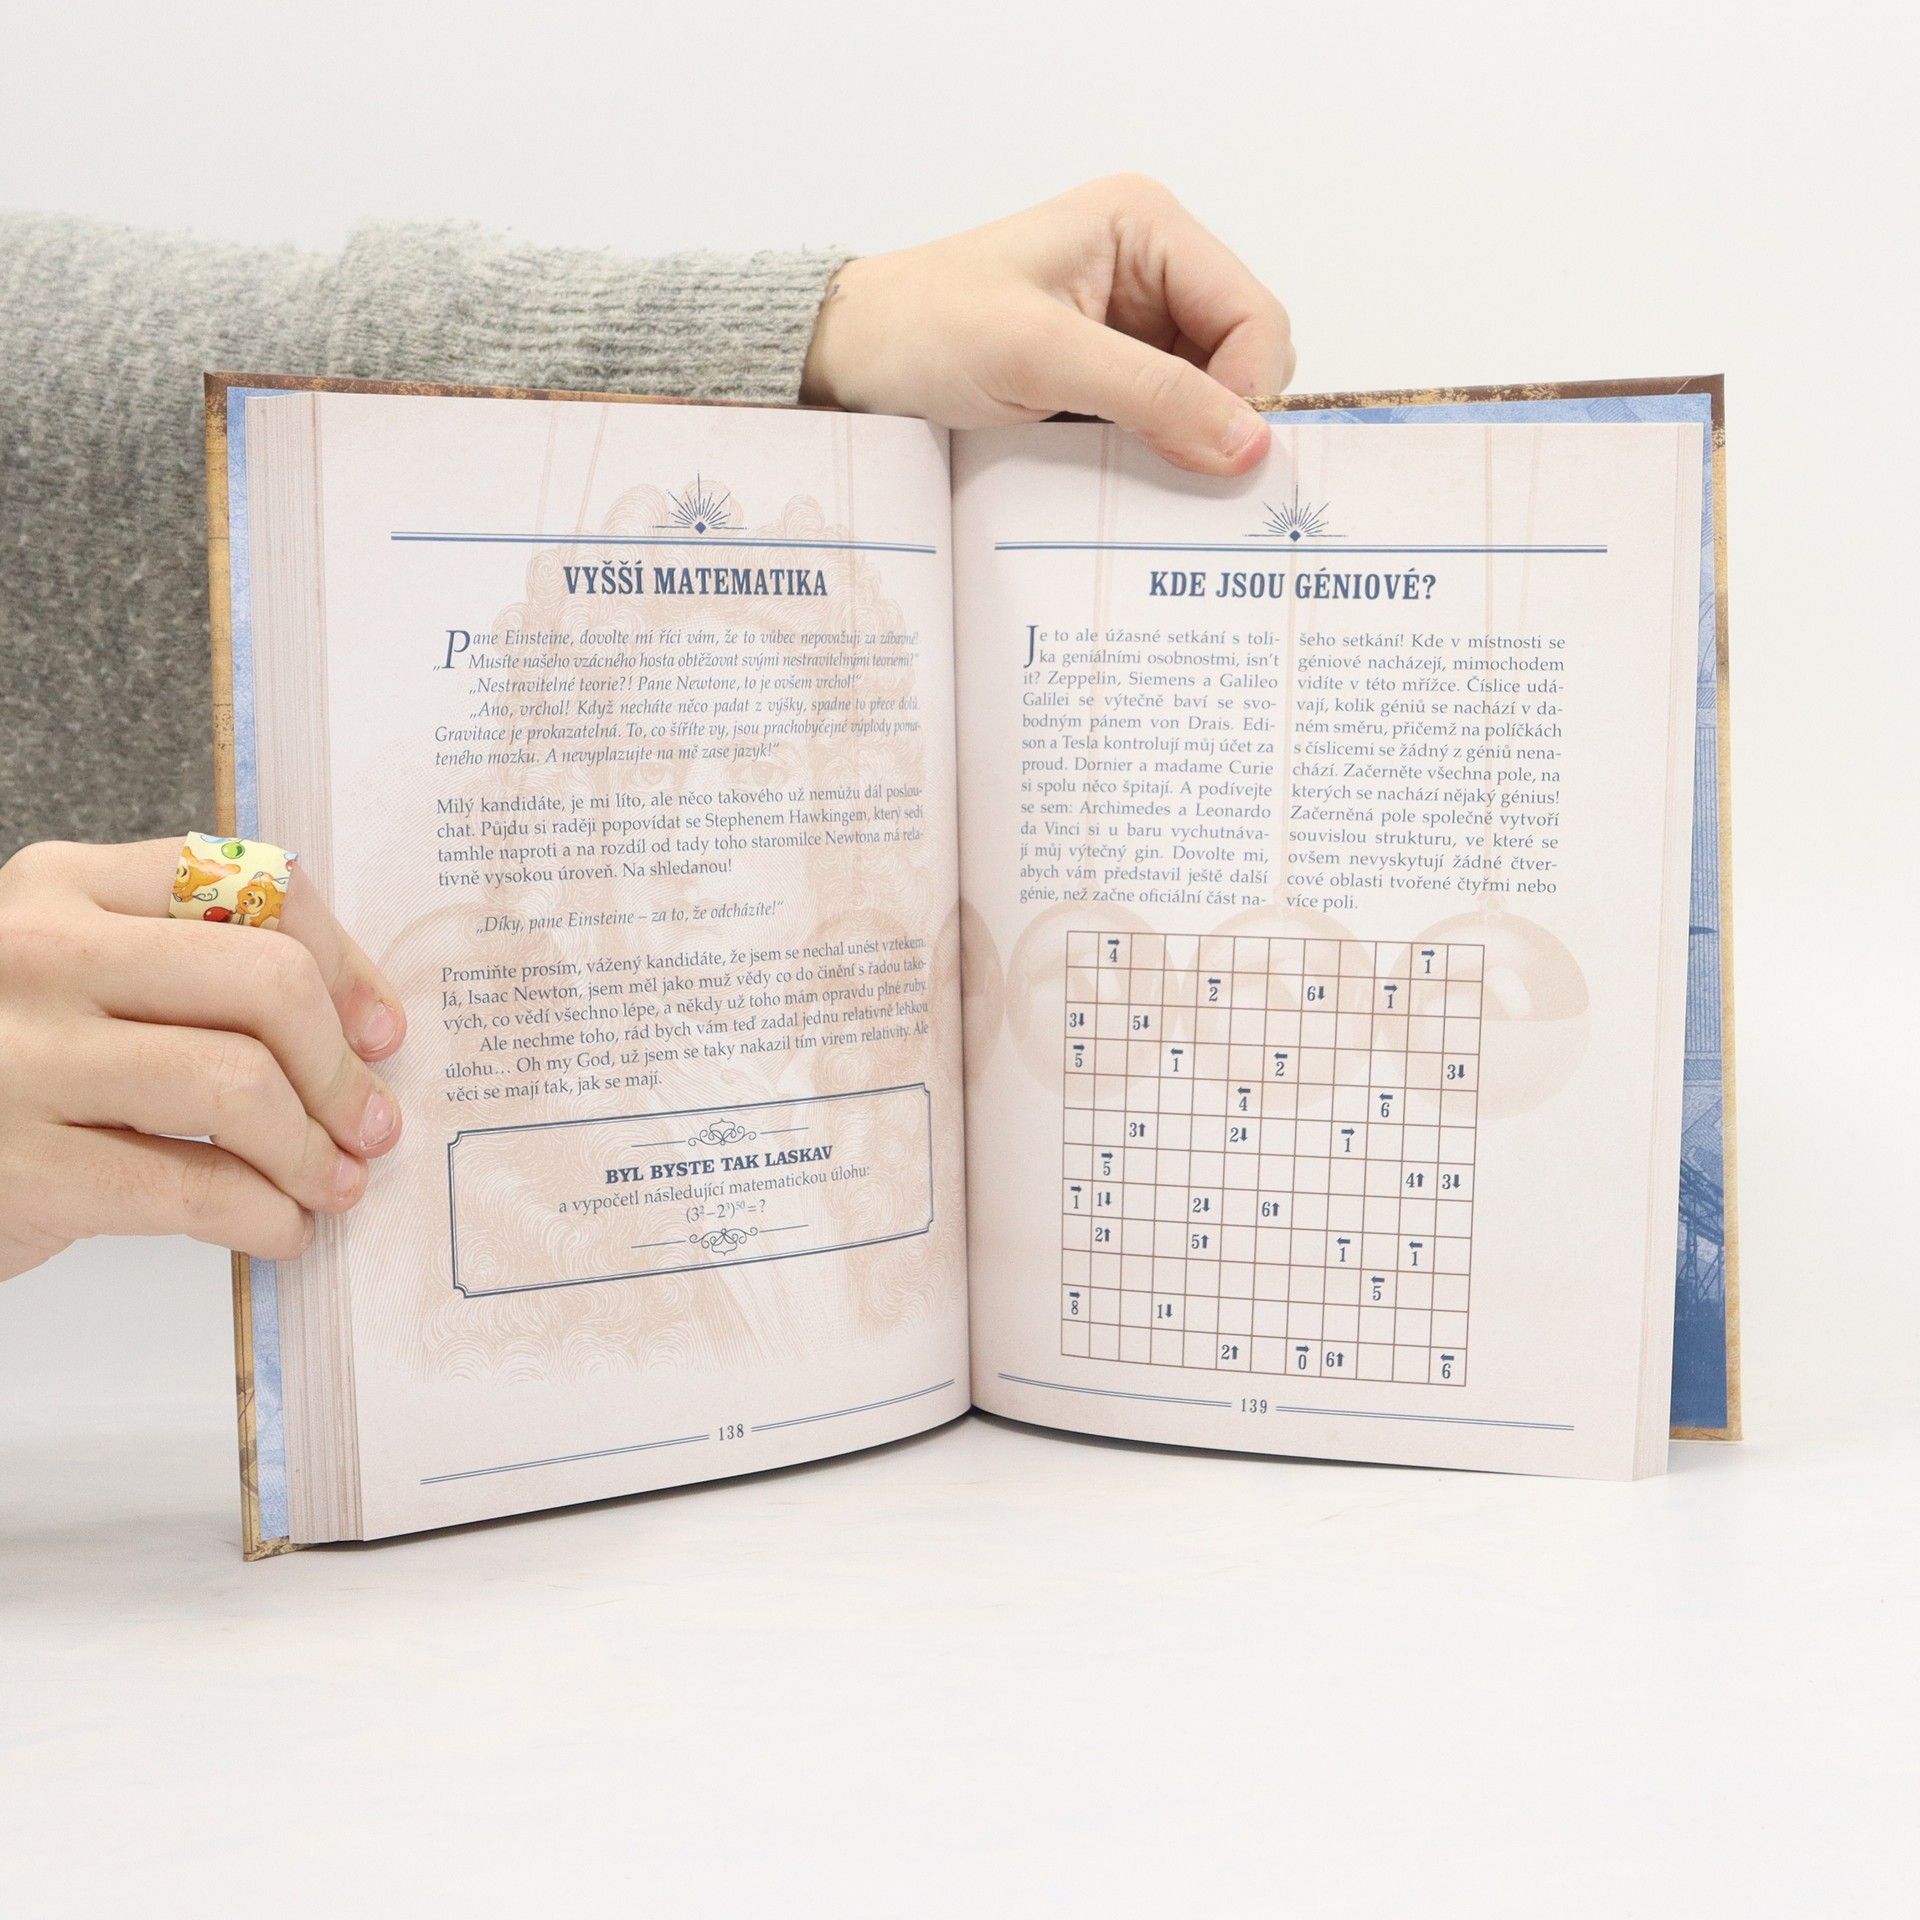 VYŠŠÍ MATEMATIKA
„Pane Einsteine, dovolte mi říci vám, že to vůbec nepovažuji za zábavné!
Musíte našeho vzácného hosta obtěžovat svými nestravitelnými teoriemi?“
„Nestravitelné teorie?! Pane Newtone, to je ovšem vrchol!“
„Ano, vrchol! Když necháte něco padat z výšky, spadne to přece dolů.
Gravitace je prokazatelná. To, co šíříte vy, jsou prachobyčejné výplody poma-
teného mozku. A nevyplazujte na mě zase jazyk!“
Milý kandidáte, je mi líto, ale něco takového už nemůžu dál poslou-
chat. Půjdu si raději popovídat se Stephenem Hawkingem, který sedí
tamhle naproti a na rozdíl od tady toho staromilce Newtona má rela-
tivně vysokou úroveň. Na shledanou!
„Díky, pane Einsteine – za to, že odcházíte!“
Promiňte prosím, vážený kandidáte, že jsem se nechal unést vztekem.
Já, Isaac Newton, jsem měl jako muž vědy co do činění s řadou tako-
vých, co vědí všechno lépe, a někdy už toho mám opravdu plné zuby.
Ale nechme toho, rád bych vám teď zadal jednu relativně lehkou
úlohu… Oh my God, už jsem se taky nakazil tím virem relativity. Ale
věci se mají tak, jak se mají.
BYL BYSTE TAK LASKAV
a vypočetl následující matematickou úlohu:
(3²–2³)⁵⁰=?
138
KDE JSOU GÉNIOVÉ?
Je to ale úžasné setkání s toli-
ka geniálními osobnostmi, isn't
it? Zeppelin, Siemens a Galileo
Galilei se výtečně baví se svo-
bodným pánem von Drais. Edi-
son a Tesla kontrolují můj účet za
proud. Dornier a madame Curie
si spolu něco špitají. A podívejte
se sem: Archimedes a Leonardo
da Vinci si u baru vychutnáva-
jí můj výtečný gin. Dovolte mi,
abych vám představil ještě další
génie, než začne oficiální část na-
šeho setkání! Kde v místnosti se
géniové nacházejí, mimochodem
vidíte v této mřížce. Číslice udá-
vají, kolik géniů se nachází v da-
ném směru, přičemž na políčkách
s číslicemi se žádný z géniů nena-
chází. Začerněte všechna pole, na
kterých se nachází nějaký génius!
Začerněná pole společně vytvoří
souvislou strukturu, ve které se
ovšem nevyskytují žádné čtver-
cové oblasti tvořené čtyřmi nebo
více poli.
➡4 ➡1
⬅2 6⬇ ➡1
3⬇ 5⬇
➡5 ⬅1 ⬅2 3⬇
⬅4 ⬅6
3⬆ 2⬇ ➡1
➡5 4⬆ 3⬇
➡1 1⬇ 2⬇ 6⬆
2⬆ 5⬆ ⬅1 ⬅1
⬅5
➡8 1⬇
2⬆ ➡0 6⬆ ⬅6
139